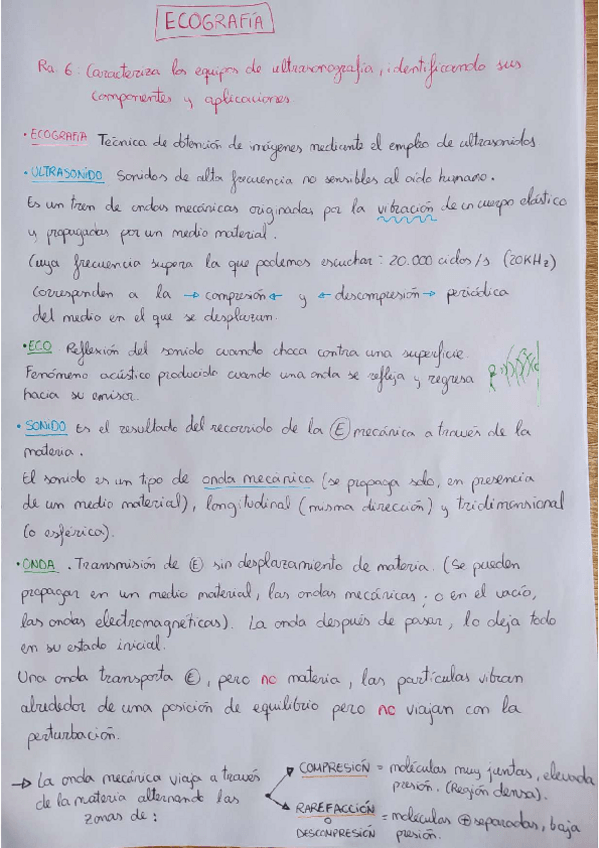 ECOGRAFÍA
Ra. 6: Caracteriza los equipos de ultrasonografía, identificando sus
componentes y aplicaciones
• ECOGRAFÍA Técnica de obtención de imágenes mediante el empleo de ultrasonidos
• ULTRASONIDO Sonidos de alta frecuencia no sensibles al oído humano.
Es un tren de ondas mecánicas originadas por la vibración de un cuerpo elástico
y propagadas por un medio material.
Cuya frecuencia supera la que podemos escuchar: 20.000 ciclos/s (20KHz)
Corresponden a la →compresión← y ←descompresión→ periódica
del medio en el que se desplazan.
• ECO Reflexión del sonido cuando choca contra una superficie.
Fenómeno acústico producido cuando una onda se refleja y regresa
hacia su emisor.
• SONIDO Es el resultado del recorrido de la Ⓔ mecánica a través de la
materia.
El sonido es un tipo de onda mecánica (se propaga solo, en presencia
de un medio material), longitudinal (misma dirección) y tridimensional
(o esférico).
• ONDA. Transmisión de Ⓔ sin desplazamiento de materia. (Se pueden
propagar en un medio material, las ondas mecánicas; o en el vacío,
las ondas electromagnéticas). La onda después de pasar, lo deja todo
en su estado inicial.
Una onda transporta Ⓔ, pero no materia, las partículas vibran
alrededor de una posición de equilibrio pero no viajan con la
perturbación.
→ La onda mecánica viaja a través
de la materia alternando las
zonas de:
COMPRESIÓN = moléculas muy juntas, elevada
presión. (Región densa).
RAREFACCIÓN
O
DESCOMPRESIÓN
= moléculas ⊕ separadas, baja
presión.